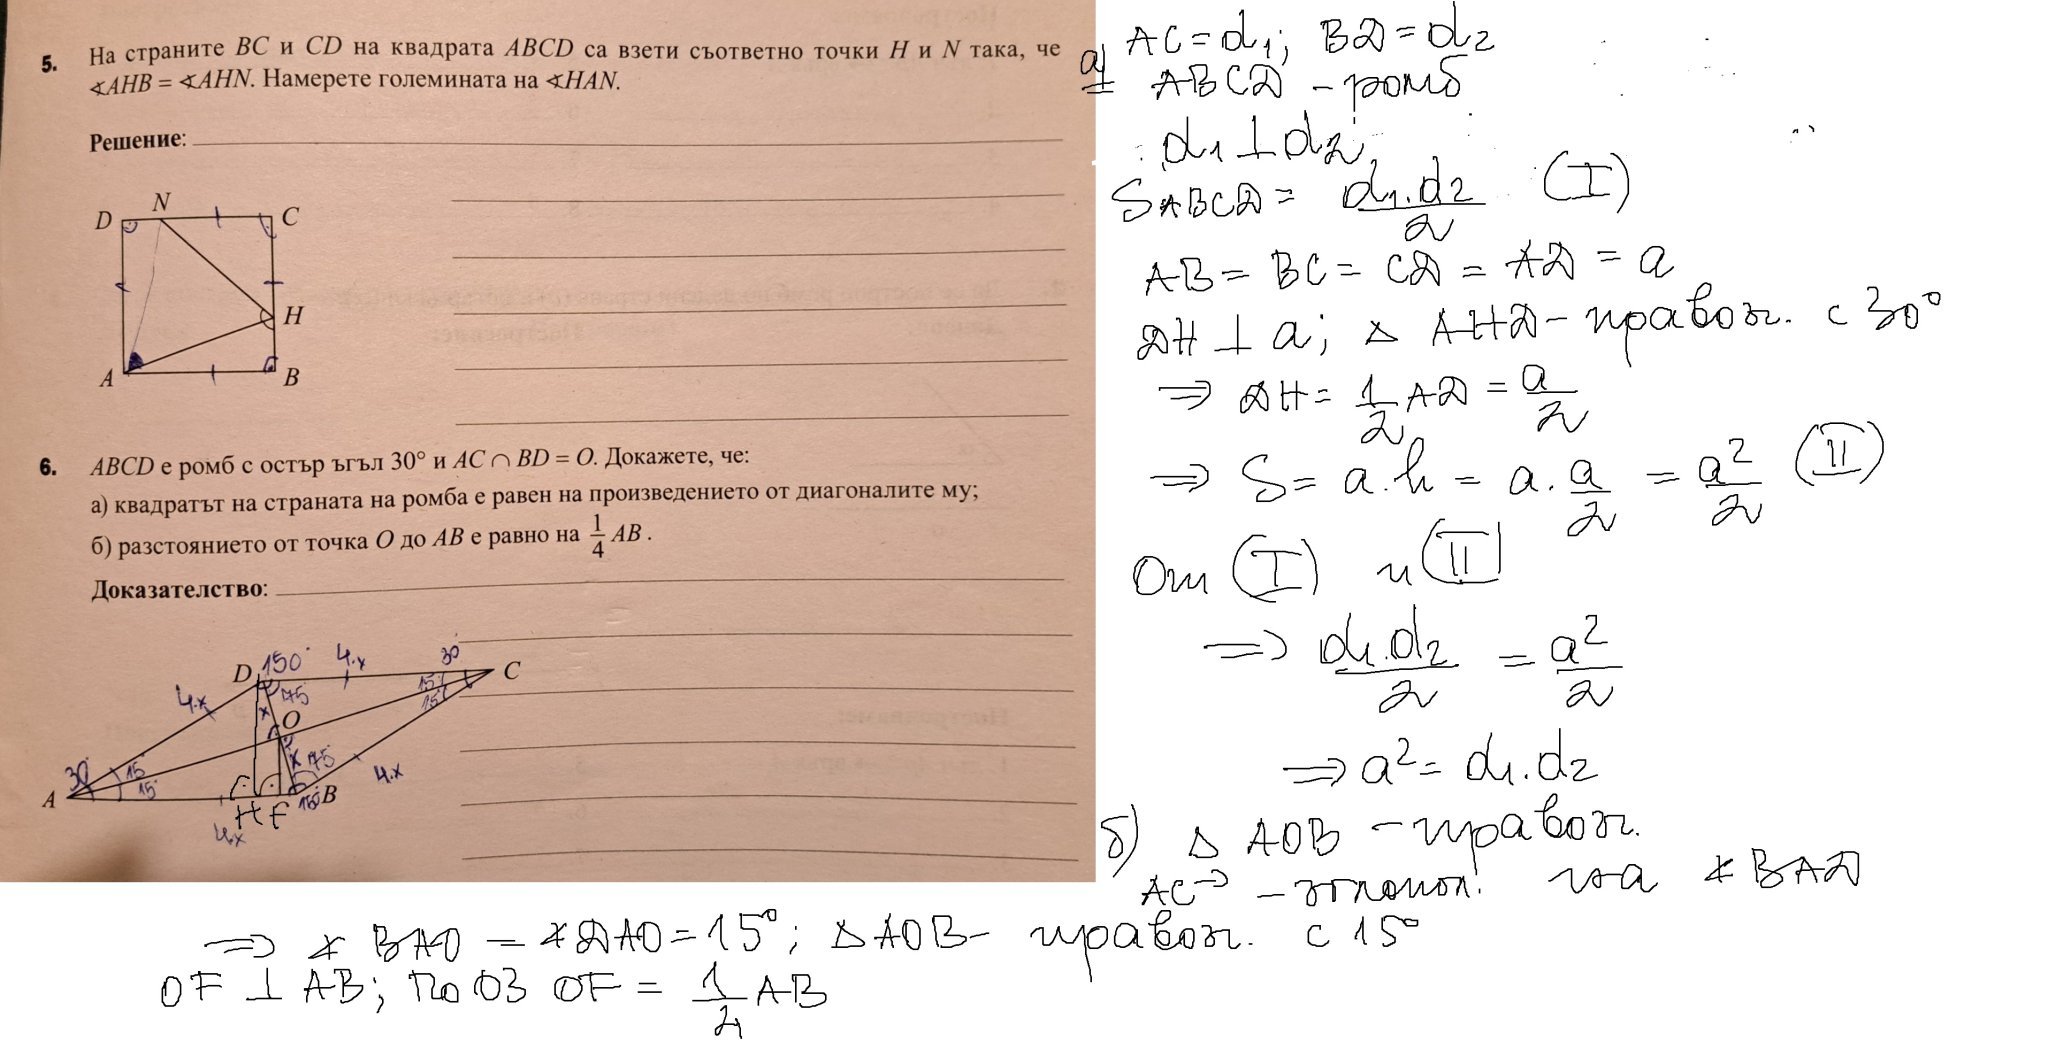 5. На страните BC и CD на квадрата ABCD са взети съответно точки H и N така, че
∢AHB = ∢AHN. Намерете големината на ∢HAN.
Решение:
D N C
H
A B
6. ABCD е ромб с остър ъгъл 30° и AC ∩ BD = O. Докажете, че:
а) квадратът на страната на ромба е равен на произведението от диагоналите му;
б) разстоянието от точка O до AB е равно на 1/4 AB.
Доказателство:
D 150° 4.x 30° C
4.x 75° 15° 15°
x O
x 75°
30° 15° 15° 4.x
A H F 150° B
4.x
а) AC = d₁; BD = d₂
ABCD - ромб
d₁ ⊥ d₂
S ABCD = d₁.d₂/2 (I)
AB = BC = CD = AD = a
DH ⊥ a; △ AHD - правоъг. с 30°
⇒ DH = 1/2 AD = a/2
⇒ S = a.h = a.a/2 = a²/2 (II)
От (I) и (II)
⇒ d₁.d₂/2 = a²/2
⇒ a² = d₁.d₂
б) △ AOB - правоъг.
AC→ - ъглопол. на ∢BAD
⇒ ∢ BAO = ∢DAO = 15°; △AOB - правоъг. с 15°
OF ⊥ AB; по ОЗ OF = 1/4 AB